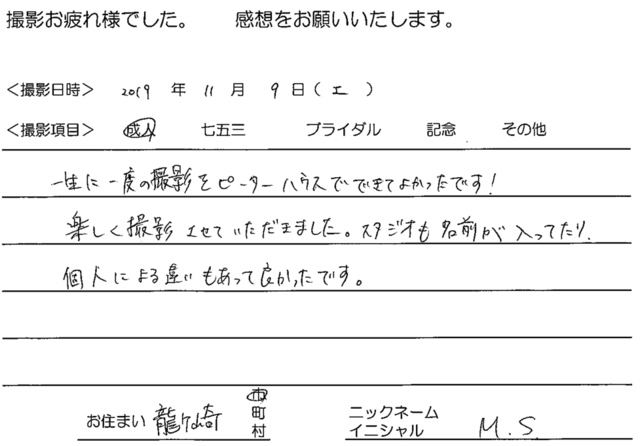 撮影お疲れ様でした。　感想をお願いいたします。
＜撮影日時＞ 2019 年 11 月 9 日（ 土 ）
＜撮影項目＞ 成人 七五三 ブライダル 記念 その他
一生に一度の撮影をピーターハウスでできてよかったです！
楽しく撮影させていただきました。スタジオも名前が入ってたり、
個人による違いもあって良かったです。
お住まい 龍ヶ崎 市 町 村
ニックネーム イニシャル M.S